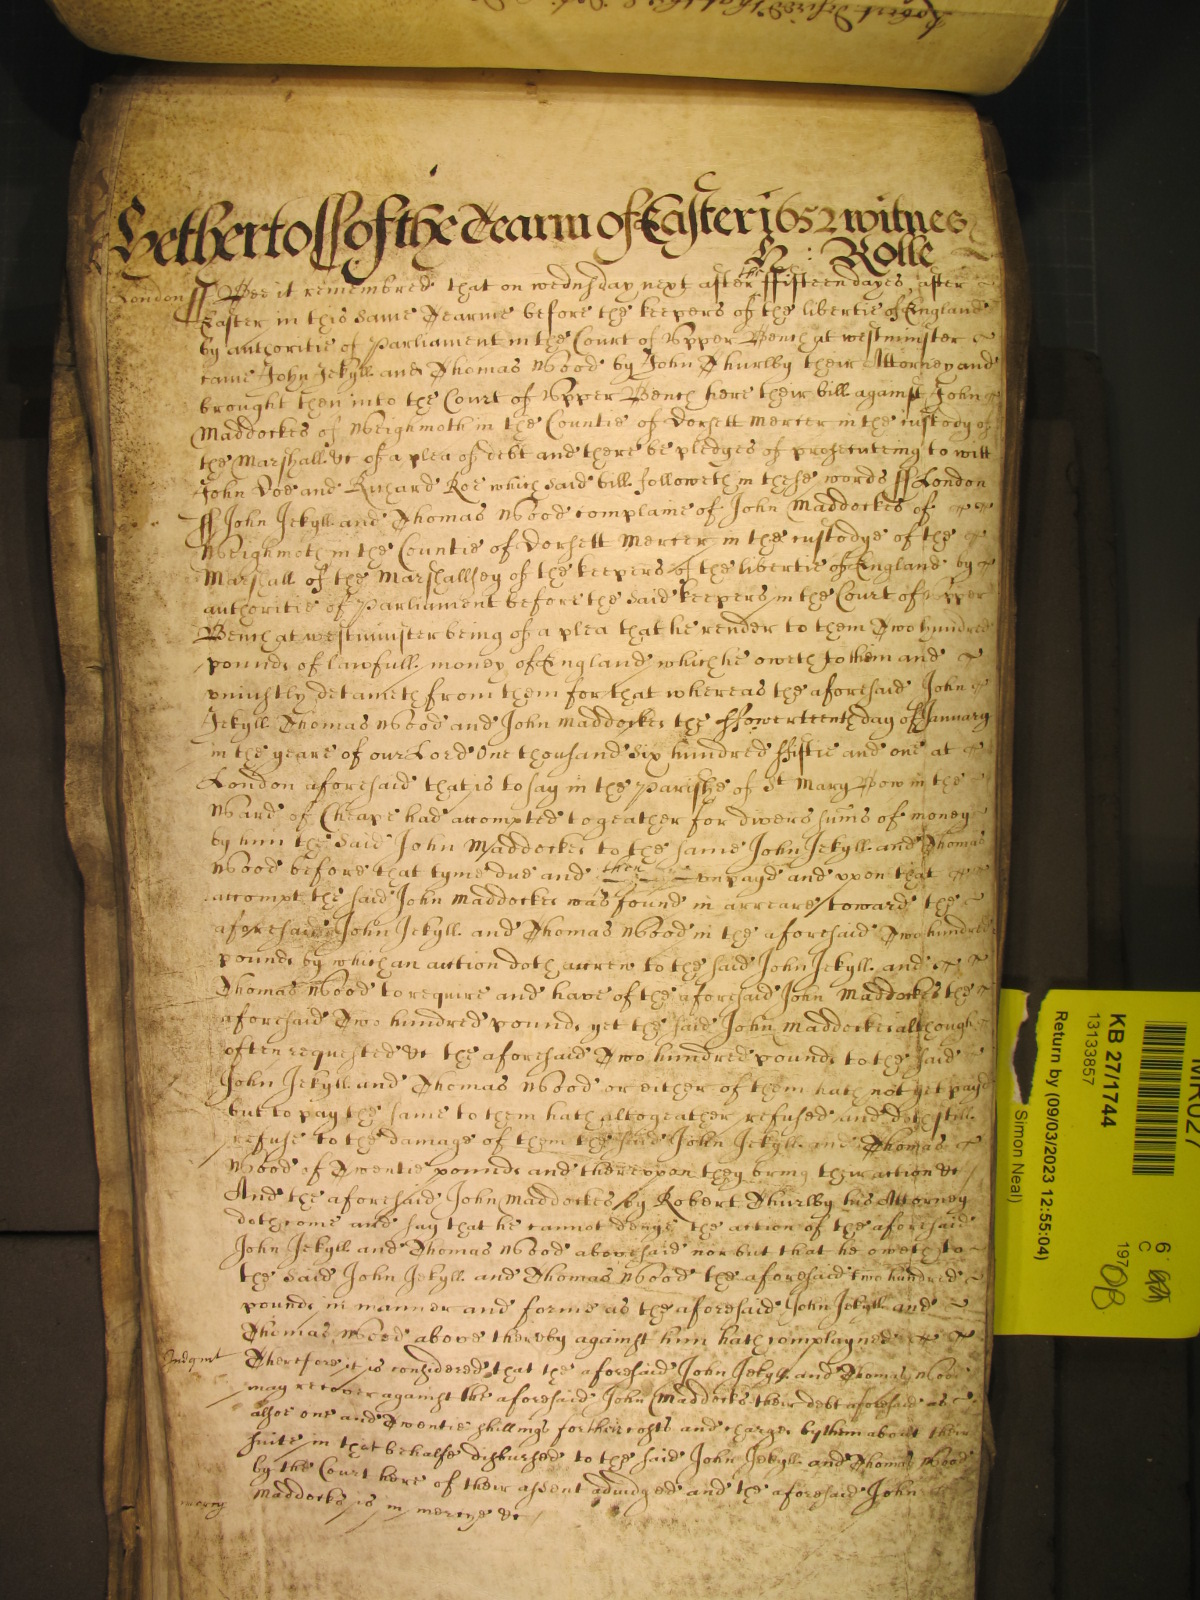 Hetherto ss of the Tearm of Easter 1652 witnes
H : Rolle
London ss Bee it remembred that on wednsday next after the ffifteen dayes after
Easter in this same Tearme before the keepers of the libertie of England
by authoritie of Parliament in the Court of Upper Bench at westminster
came John Jekyll and Thomas Wood by John Thurlby their Attorney and
brought then into the Court of Upper Bench here their bill against John
Maddockes of Weighmoth in the Countie of Dorsett Mercer in the custody of
the Marshall &c of a plea of debt and there be pledges of prosecuteing to witt
John Doe and Richard Roe which said bill followeth in these words ss London
ss John Jekyll and Thomas Wood complaine of John Maddockes of
Weighmoth in the Countie of Dorsett Mercer in the custodye of the
Marshall of the Marshallsey of the keepers of the libertie of England by
authoritie of Parliament before the said keepers in the Court of Upper
Bench at westminster being of a plea that he render to them Two hundred
pounds of lawfull money of England which he oweth to them and
uniustly detaineth from them for that whereas the aforesaid John
Jekyll Thomas Wood and John Maddockes the ffowerteenth day of January
in the yeare of our Lord One thousand six hundred ffiftie and one at
London aforesaid that is to say in the Parishe of St Mary Bow in the
Ward of Cheape had accompted togeather for divers sums of money
by him the said John Maddockes to the same John Jekyll and Thomas
Wood before that tyme due and then unpayd and upon that
accompt the said John Maddockes was found in arreare toward the
aforesaid John Jekyll and Thomas Wood in the aforesaid Two hundred
pounds by which an action doth accrew to the said John Jekyll and
Thomas Wood to require and have of the aforesaid John Maddockes the
aforesaid Two hundred pounds yet the said John Maddockes although
often requested &c the aforesaid Two hundred pounds to the said
John Jekyll and Thomas Wood or either of them hath not yet payd
but to pay the same to them hath altogeather refused and doth still
refuse to the damage of them the said John Jekyll and Thomas
Wood of Twentie pounds and thereupon they bring their action &c
And the aforesaid John Maddockes by Robert Thurlby his Attorney
doth come and say that he cannot denye the action of the aforesaid
John Jekyll and Thomas Wood abovesaid nor but that he oweth to
the said John Jekyll and Thomas Wood the aforesaid two hundred
pounds in manner and forme as the aforesaid John Jekyll and
Thomas Wood above thereby against him hath complayned
Iudgmt Therefore it is considered that the aforesaid John Jekyll and Thomas Wood
may recover against the aforesaid John Maddocks their debt aforesaid as
alsoe one and Twentie shillings for their costs and charges by them about their
suite in that behalfe disbursed to the said John Jekyll and Thomas Wood
by the Court here of their assent adiudged and the aforesaid John
mercy Maddocks is in mercye &c
KB 27/1744
13133857
Return by (09/03/2023 12:55:04)
Simon Neal)
6
C
197